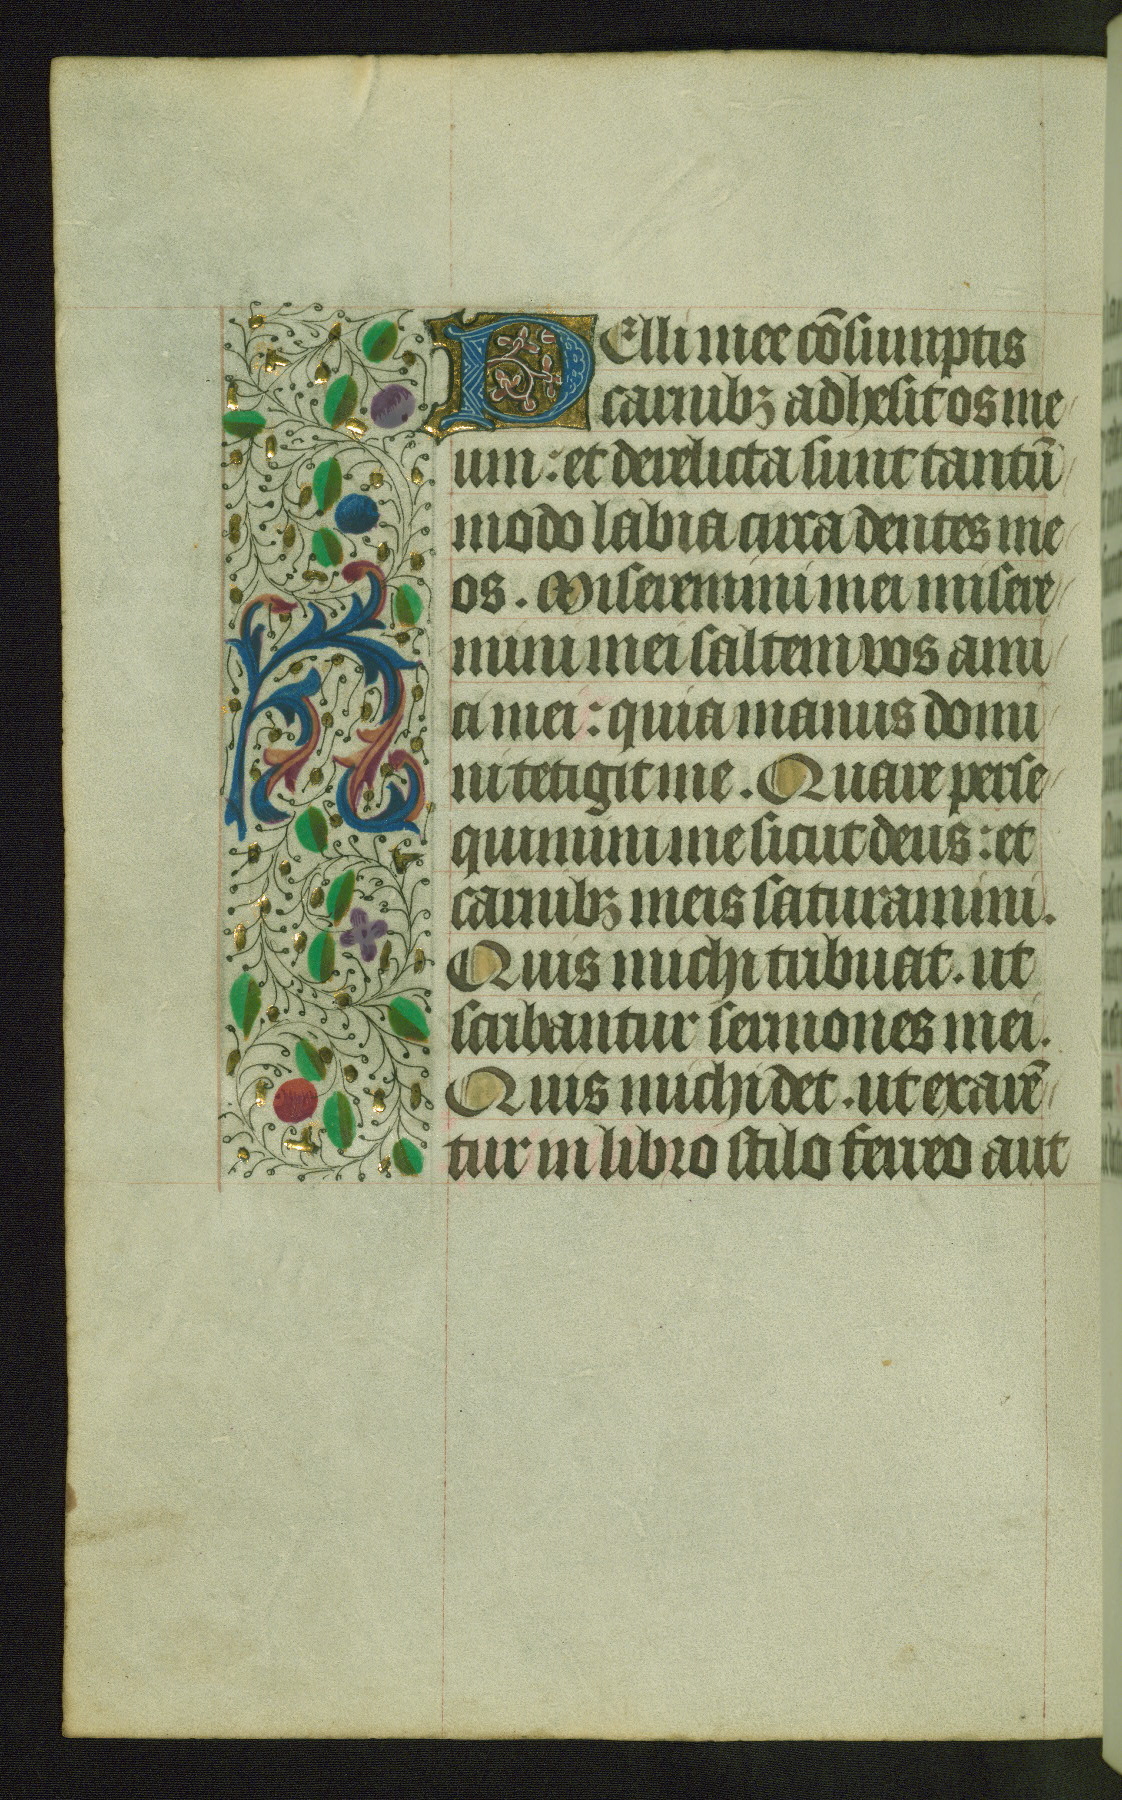 PElli mee cōsumptis
carnibꝫ adhesit os me
um : et derelicta sunt tantū
modo labia circa dentes me
os . Miseremini mei misere
mini mei saltem vos ami
ci mei : quia manus domi
ni tetigit me . Quare perse
quimini me sicut deus : et
carnibꝫ meis saturamini .
Quis michi tribuat . ut
scribantur sermones mei .
Quis michi det . ut exarē
tur in libro stilo ferreo aut